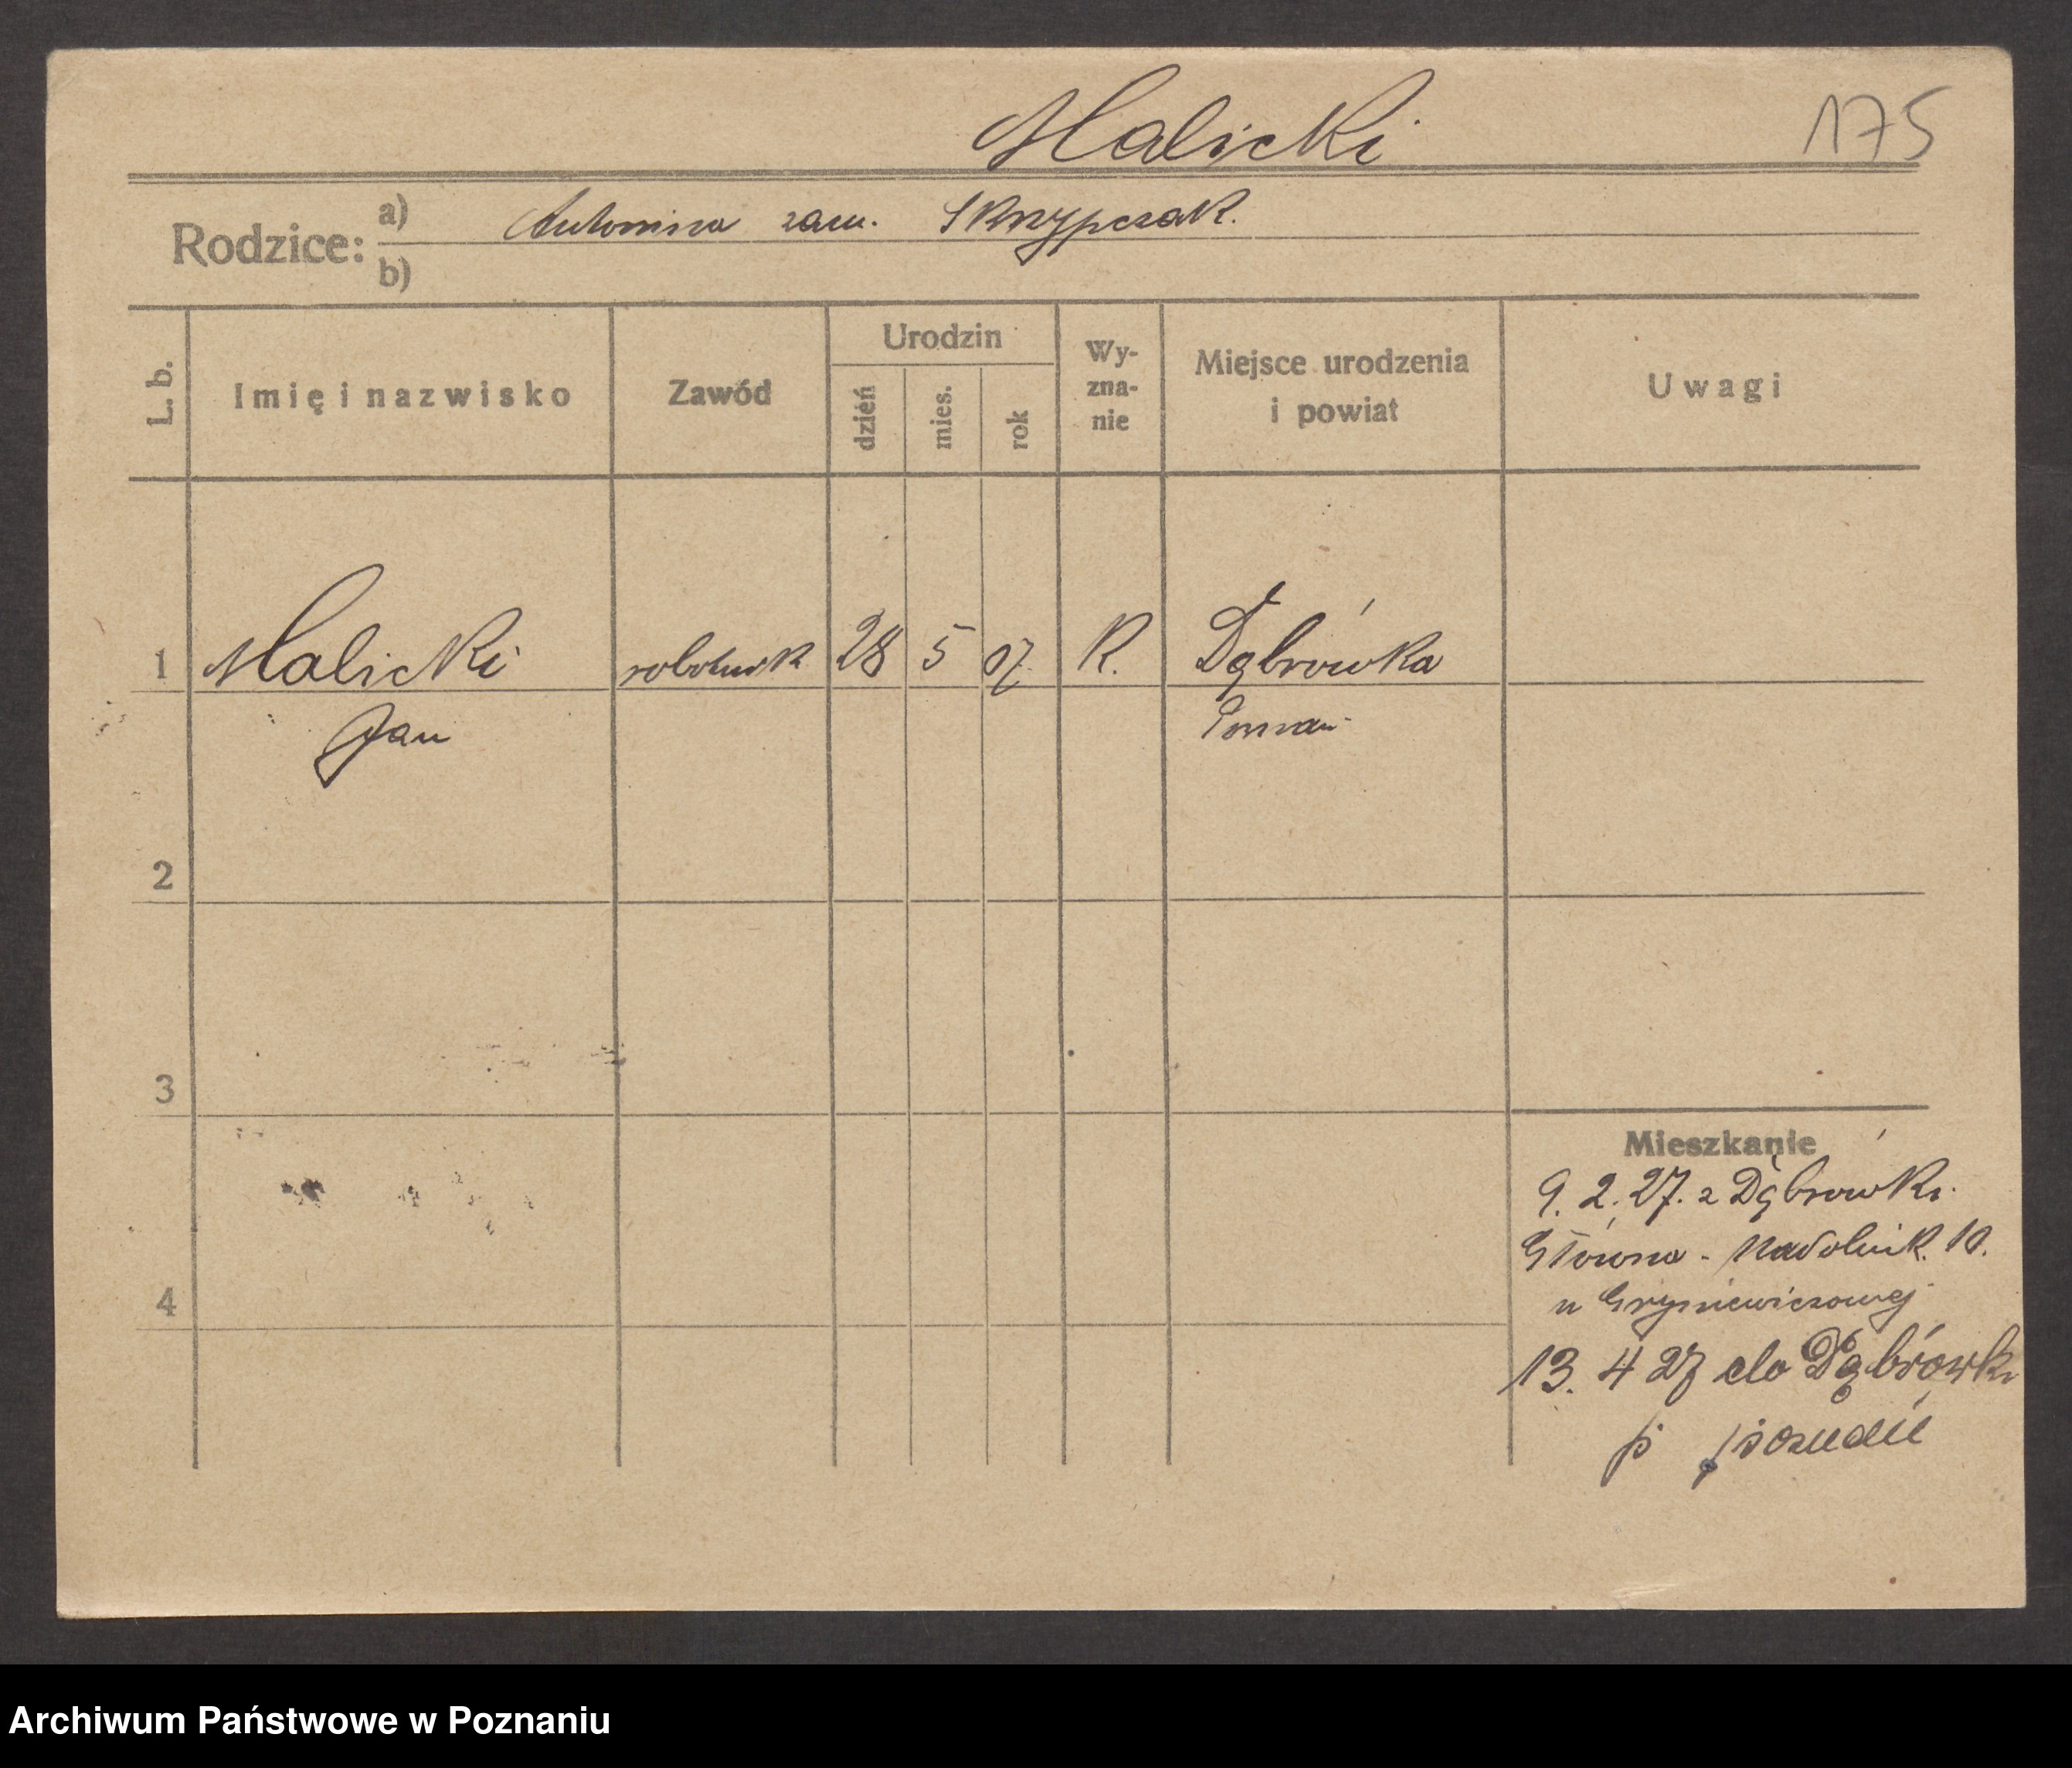 Malicki 175
Rodzice: a) Antonina zam. Skrzypczak.
b)
L. b. Imię i nazwisko Zawód Urodzin dzień mies. rok Wy-zna-nie Miejsce urodzenia i powiat Uwagi
1 Malicki robotnik 28 5 07. K. Dąbrówka
Jan Poznań
2
3
Mieszkanie
9. 2. 27. z Dąbrówki
Główna - Nadolnik. 10.
4
u Gryniewiczowej
13. 4 27 do Dąbrówki
p
Archiwum Państwowe w Poznaniu